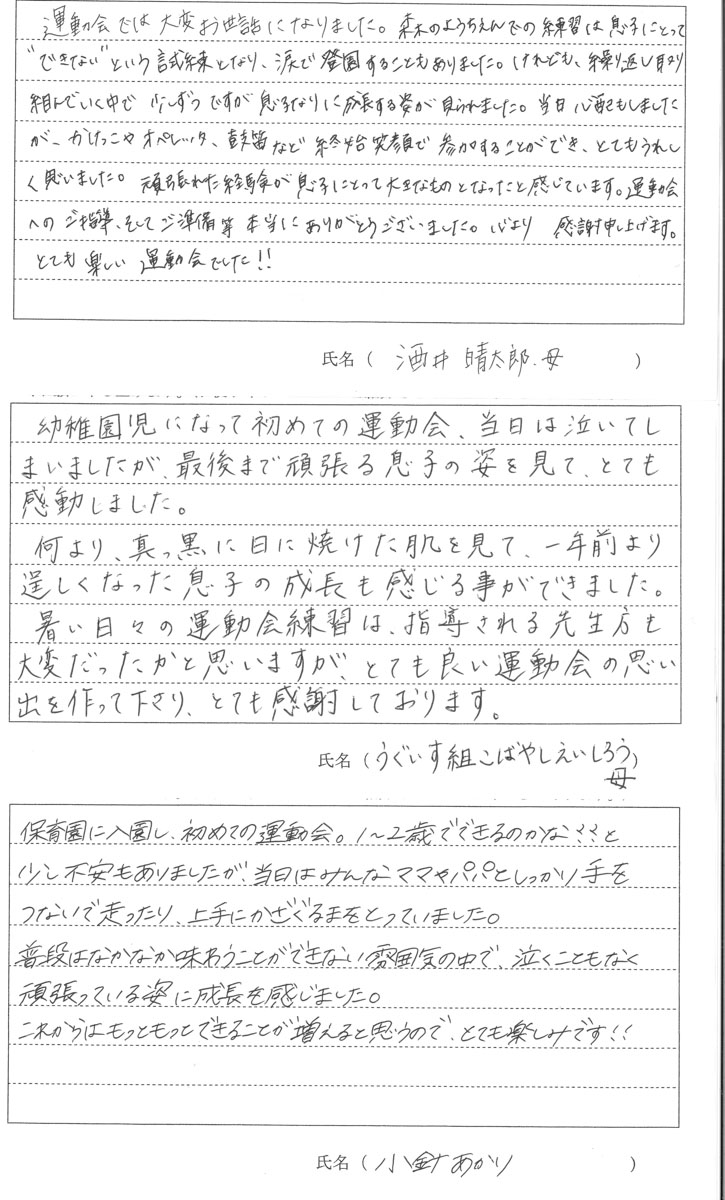 運動会では大変お世話になりました。森木のようちえんでの練習は息子にとって
"できない"という試練となり、涙で登園することもありました。けれども、繰り返し取り
組んでいく中で 少しずつですが息子なりに成長する姿が見られました。当日心配もしました
が、かけっこやオペレッタ、鼓笛など終始笑顔で参加することができ、とてもうれし
く思いました。頑張れた経験が息子にとって大きなものとなったと感じています。運動会
へのご指導、そしてご準備等本当にありがとうございました。心より 感謝申し上げます。
とても楽しい運動会でした!!
氏名( 酒井 晴太郎.母 )
幼稚園児になって初めての運動会、当日は泣いてし
まいましたが、最後まで頑張る息子の姿を見て、とても
感動しました。
何より、真っ黒に日に焼けた肌を見て、一年前より
逞しくなった息子の成長も感じる事ができました。
暑い日々の運動会練習は、指導される先生方も
大変だったかと思いますが、とても良い運動会の思い
出を作って下さり、とても感謝しております。
氏名(うぐいす組こばやしえいしろう)
母
保育園に入園し、初めての運動会。1〜2歳でできるのかな??と
少し不安もありましたが、当日はみんなママやパパとしっかり手を
つないで走ったり、上手にかざぐるまをとっていました。
普段はなかなか味わうことができない雰囲気の中で、泣くこともなく
頑張っている姿に成長を感じました。
これからはもっともっとできることが増えると思うので、とても楽しみです!!
氏名( 小針あかり )